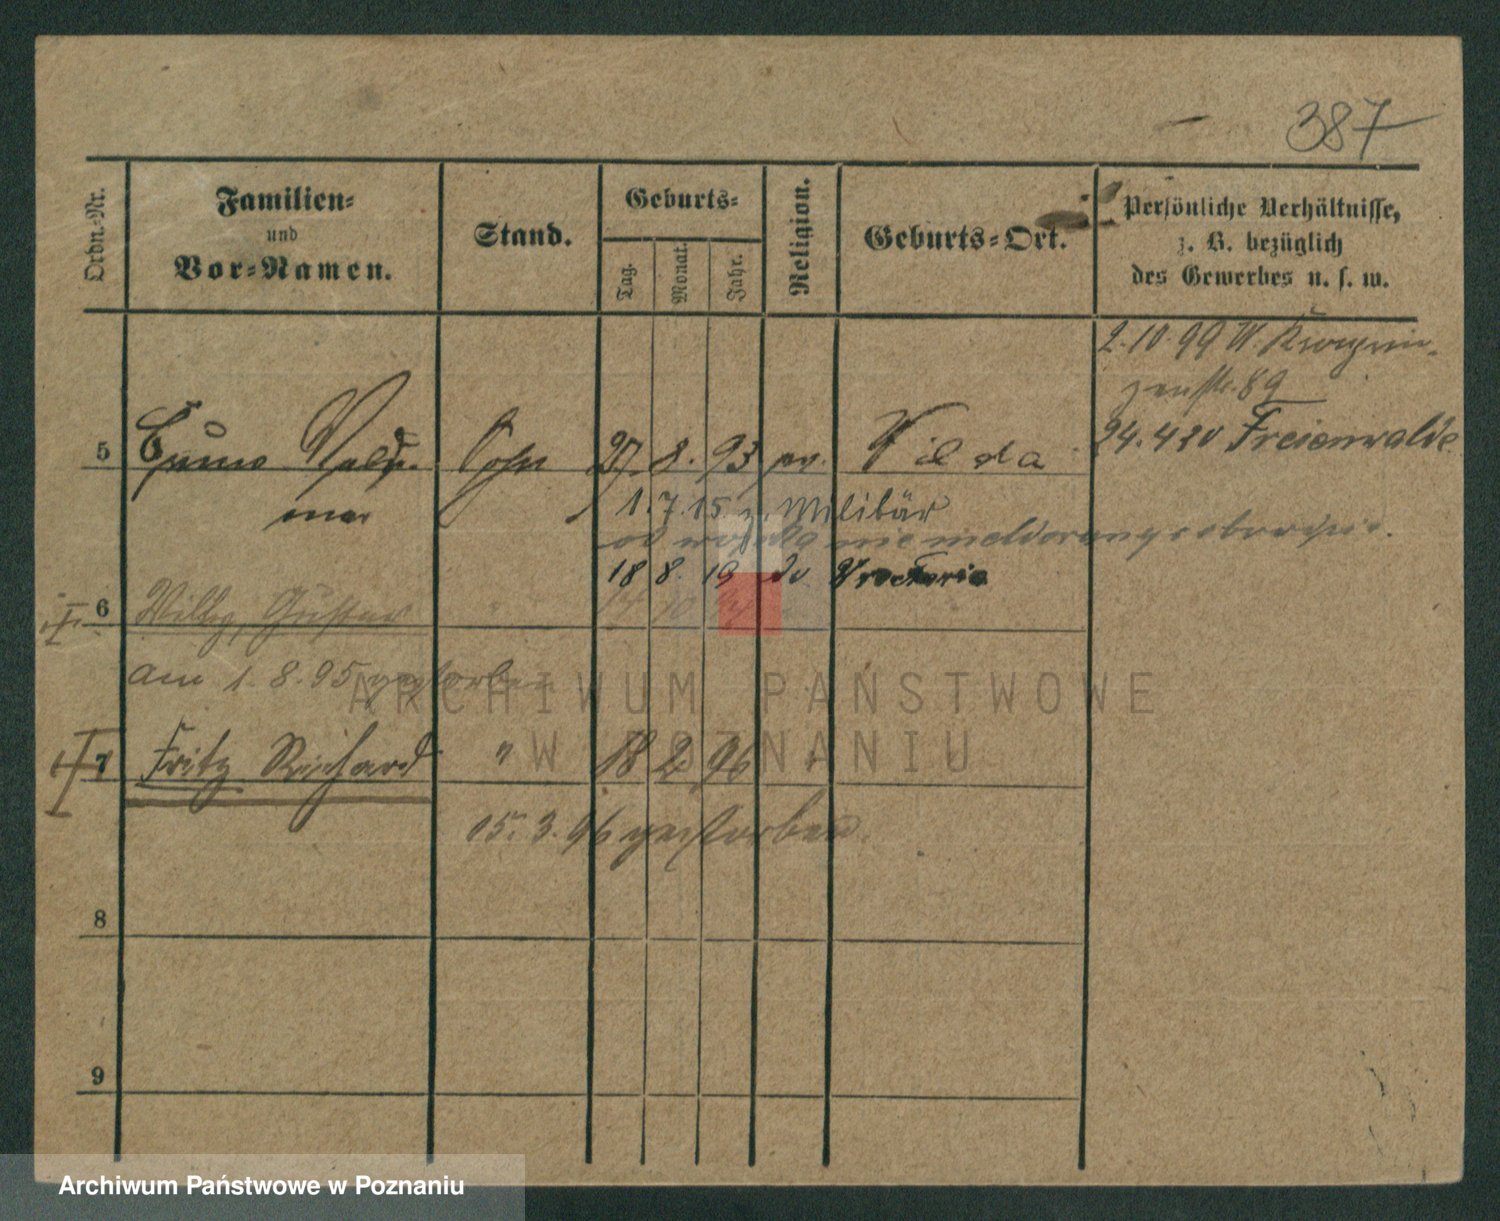 387
Ordn.-Nr.
Familien-
und
Vor-Namen.
Stand.
Geburts-
Tag.
Monat.
Jahr.
Religion.
Geburts-Ort.
Persönliche Verhältnisse,
z. B. bezüglich
des Gewerbes u. s. w.
2.10.99 W. Kronprin-
zenstr. 89
24.4 20 Freienwalde
5 Bruno Walde-
mar
Sohn 27. 8. 93 ev. Wilda
1.7.15 z. Militär
od wojska nie meldowany
18 8. 19 do
6 Willy, Gustav "
am 1.8.95 gestorben
7 Fritz Richard " 18 2 96
15. 3. 96 gestorben.
8
9
ARCHIWUM PAŃSTWOWE
W POZNANIU
Archiwum Państwowe w Poznaniu